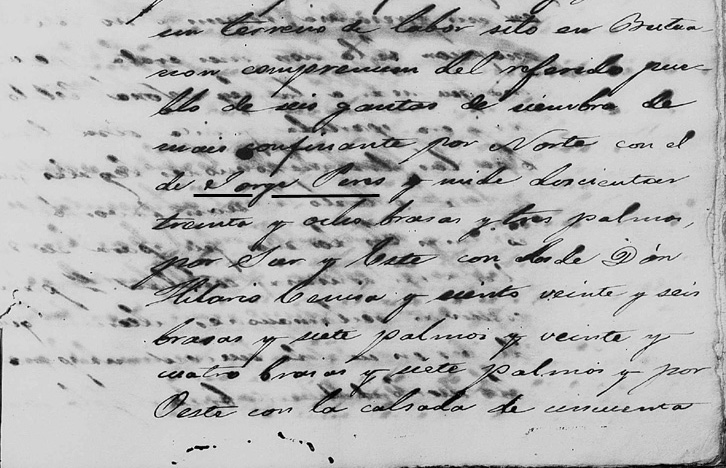 un terreno de labor sito en Butua-
cion comprension del referido pue-
blo de seis gantas de siembra de
mais confinante por Norte con el
de Jorge Peres y mide doscientas
treinta y ocho brasas y tres palmos,
por Sur y Este con los de Dón
Hilario y ciento veinte y seis
brasas y siete palmos y veinte y
cuatro brasas y siete palmos y por
Oeste con la calsada de cincuenta